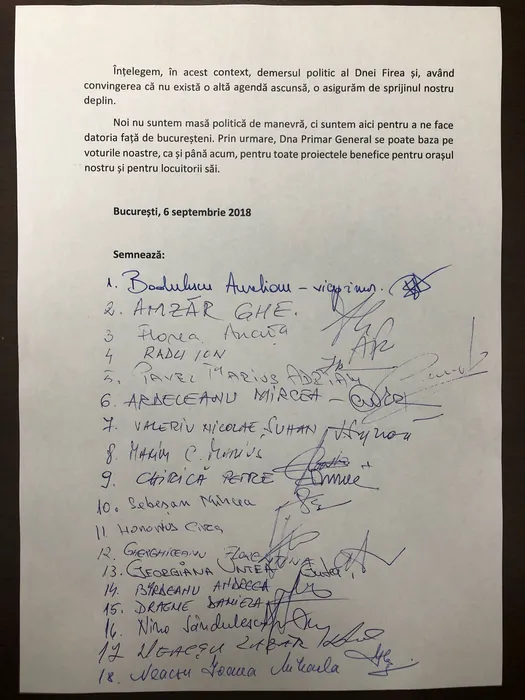 Înțelegem, în acest context, demersul politic al Dnei Firea și, având
convingerea că nu există o altă agendă ascunsă, o asigurăm de sprijinul nostru
deplin.
Noi nu suntem masă politică de manevră, ci suntem aici pentru a ne face
datoria față de bucureșteni. Prin urmare, Dna Primar General se poate baza pe
voturile noastre, ca și până acum, pentru toate proiectele benefice pentru orașul
nostru și pentru locuitorii săi.
București, 6 septembrie 2018
Semnează:
1. Badulescu Aurelian – viceprimar.
2. AMZĂR GHE.
3 Florea Ancuța
4 RADU ION
5. PAVEL MARIUS ADRIAN
6. ARDELEANU MIRCEA –
7. VALERIU NICOLAE SUHAN
8. Marin C. Marius
9. CHIRICĂ PETRE
10. Sebeșan Mircea
11 Honorius
12. GHERGHICEANU FLORENTINA
13. GEORGIANA UNTEA
14. BÎRDEANU ANDREEA
15. DRAGNE DANIELA
16. Nino Săndulescu
17 NEACȘU CEZAR
18. Neacșu Ioana Mihaela